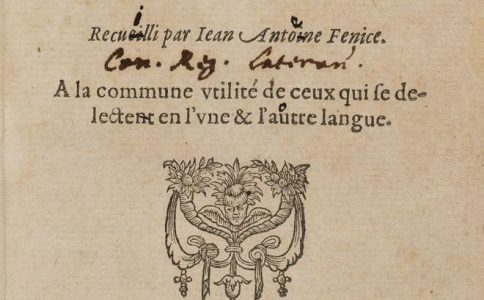 Recueilli par Iean Antoine Fenice.
Can. Reg. Lateran.
A la commune vtilité de ceux qui ſe de-
lectent en l'vne & l'autre langue.